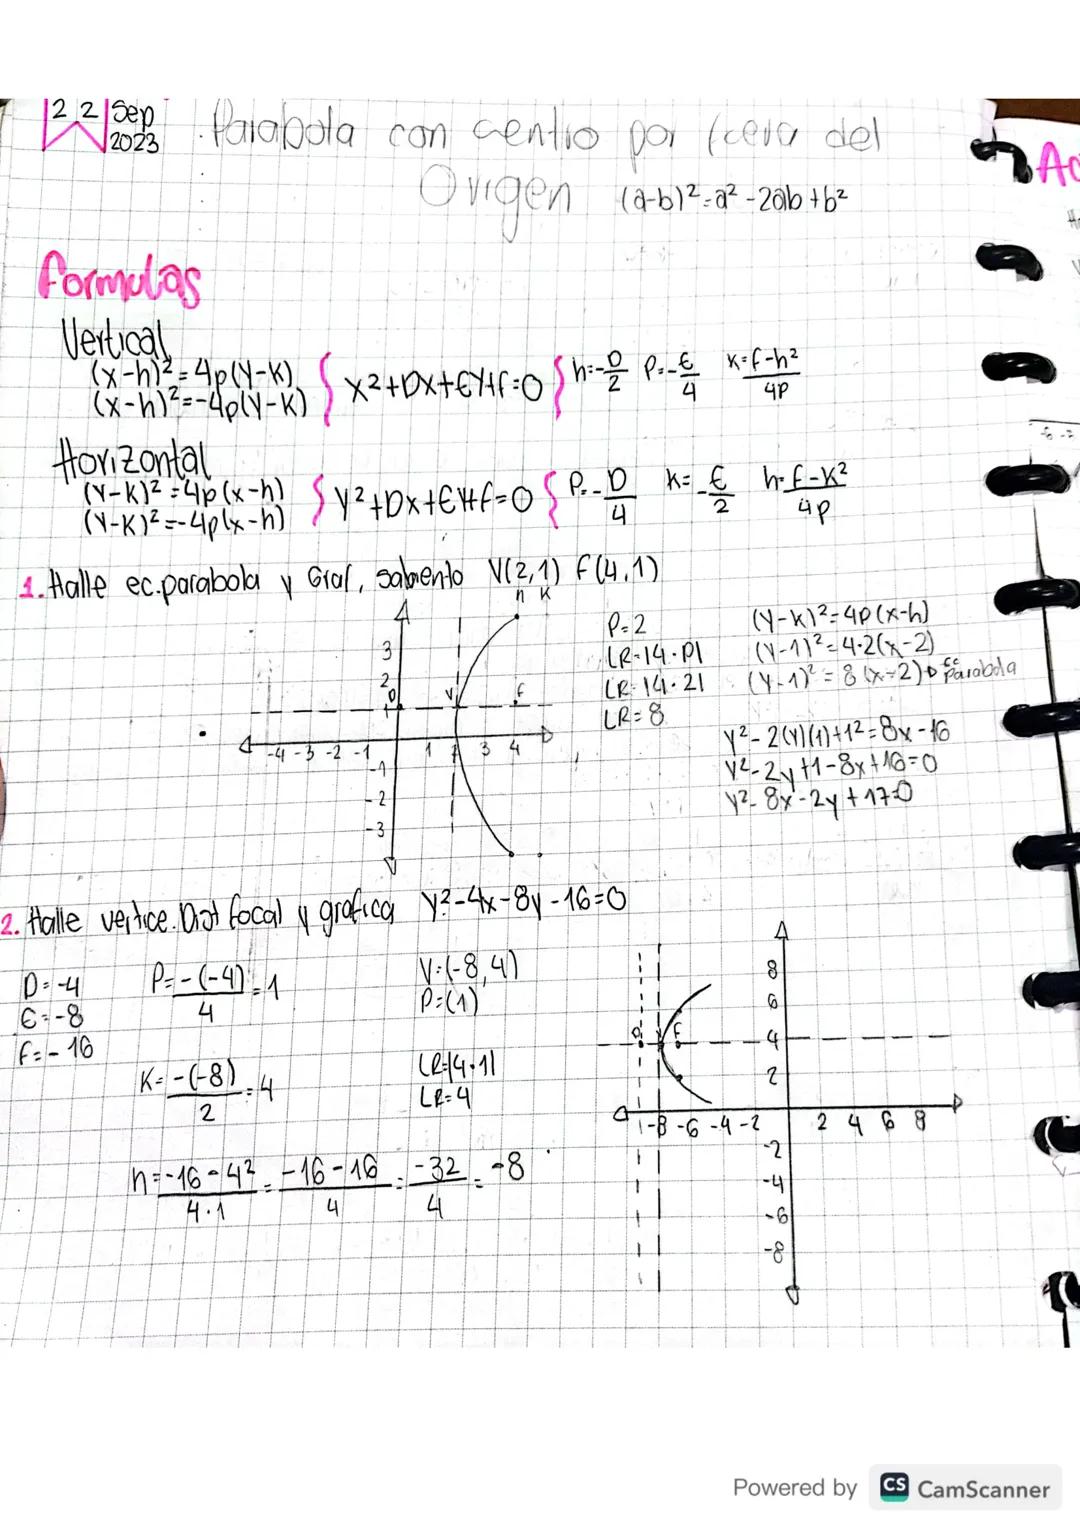 22 Sep
2023
Parabola con centro por fuera del
Origen (a-b)²=a²-2ab+b²
formulas
Vertical
(x-h)²=4p(y-k)
(x-h)²=-4p(y-k)
x²+Dx+Ey+f=0
h=-D/2 P=-E/4 k=f-h²/4P
Horizontal
(y-k)²=4p(x-h)
(y-k)²=-4p(x-h)
y²+Dx+Ey+f=0
P=-D/4 k=-E/2 h=f-k²/4p
1. Halle ec.parabola y Graf, sabiento V(2,1) F(4,1)
h k
P=2
LR=|4·P|
LR=|4·2|
LR=8
(y-k)²=4p(x-h)
(y-1)²=4·2(x-2)
(y-1)²=8(x-2) ec parabola
y²-2(y)(1)+1²=8x-16
y²-2y+1-8x+16=0
y²-8x-2y+17=0
3
2
D V F
1
-4 -3 -2 -1 1 2 3 4
-1
-2
-3
2. Halle vertice. Dist focal y grafica y²-4x-8y-16=0
D=-4
E=-8
f=-16
P=-(-4)/4=1
k=-(-8)/2=4
h=-16-4²/4·1=-16-16/4=-32/4=-8
V=(-8,4)
P=(1)
LR=|4·1|
LR=4
8
6
D V F 4
2
-8 -6 -4 -2 2 4 6 8
-2
-4
-6
-8
Powered by CS CamScanner